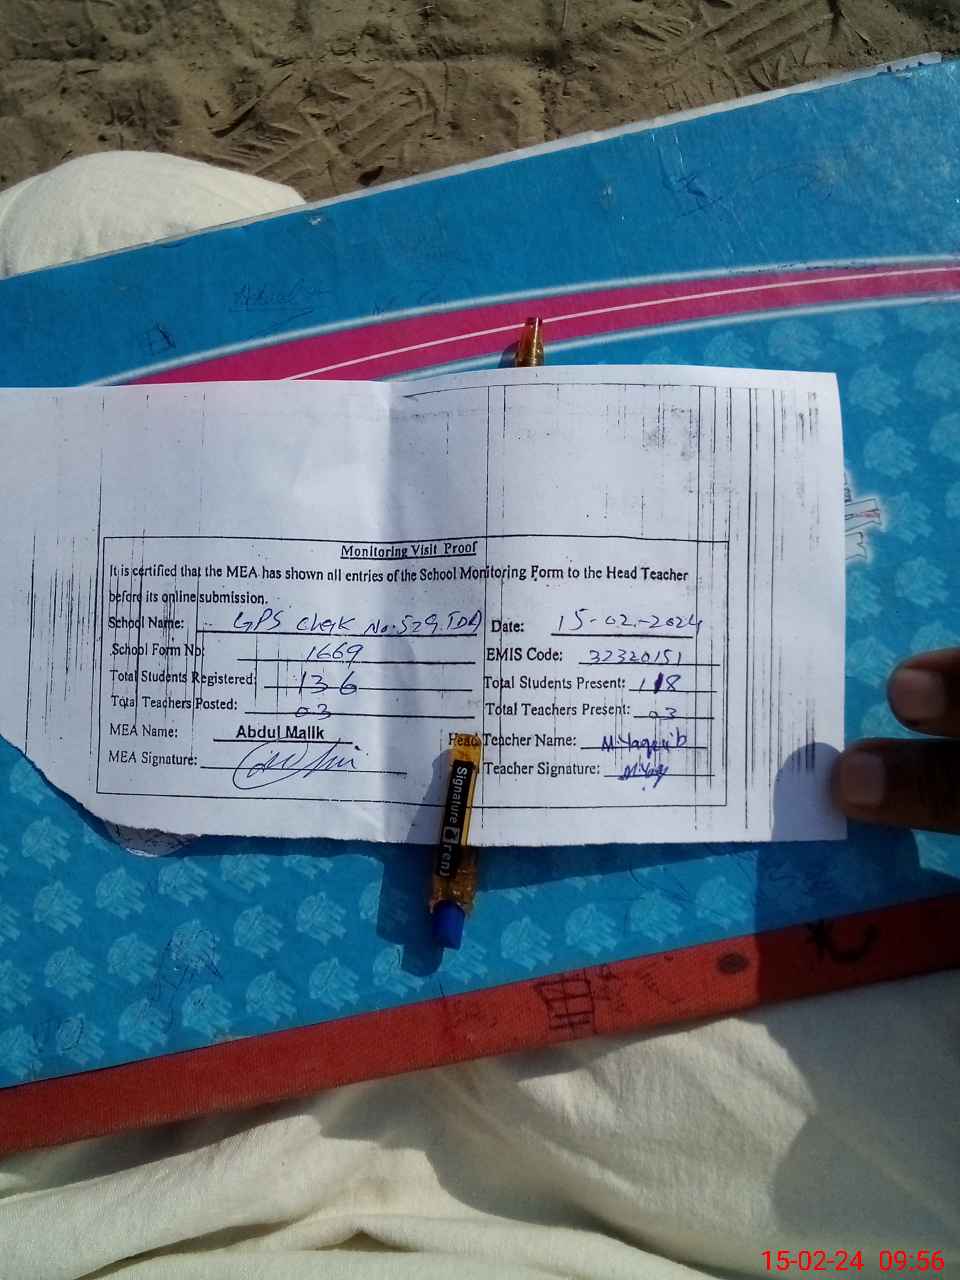 Monitoring Visit Proof
It is certified that the MEA has shown all entries of the School Monitoring Form to the Head Teacher
before its online submission.
School Name: GPS Chak No. 529.TDA Date: 15-02-2024
School Form No: 1669 EMIS Code: 32320151
Total Students Registered: 136 Total Students Present: 118
Total Teachers Posted: 03 Total Teachers Present: 03
MEA Name: Abdul Malik Head Teacher Name: M.Yaqoub
MEA Signature: Teacher Signature: M.Yaq
Signature
15-02-24 09:56